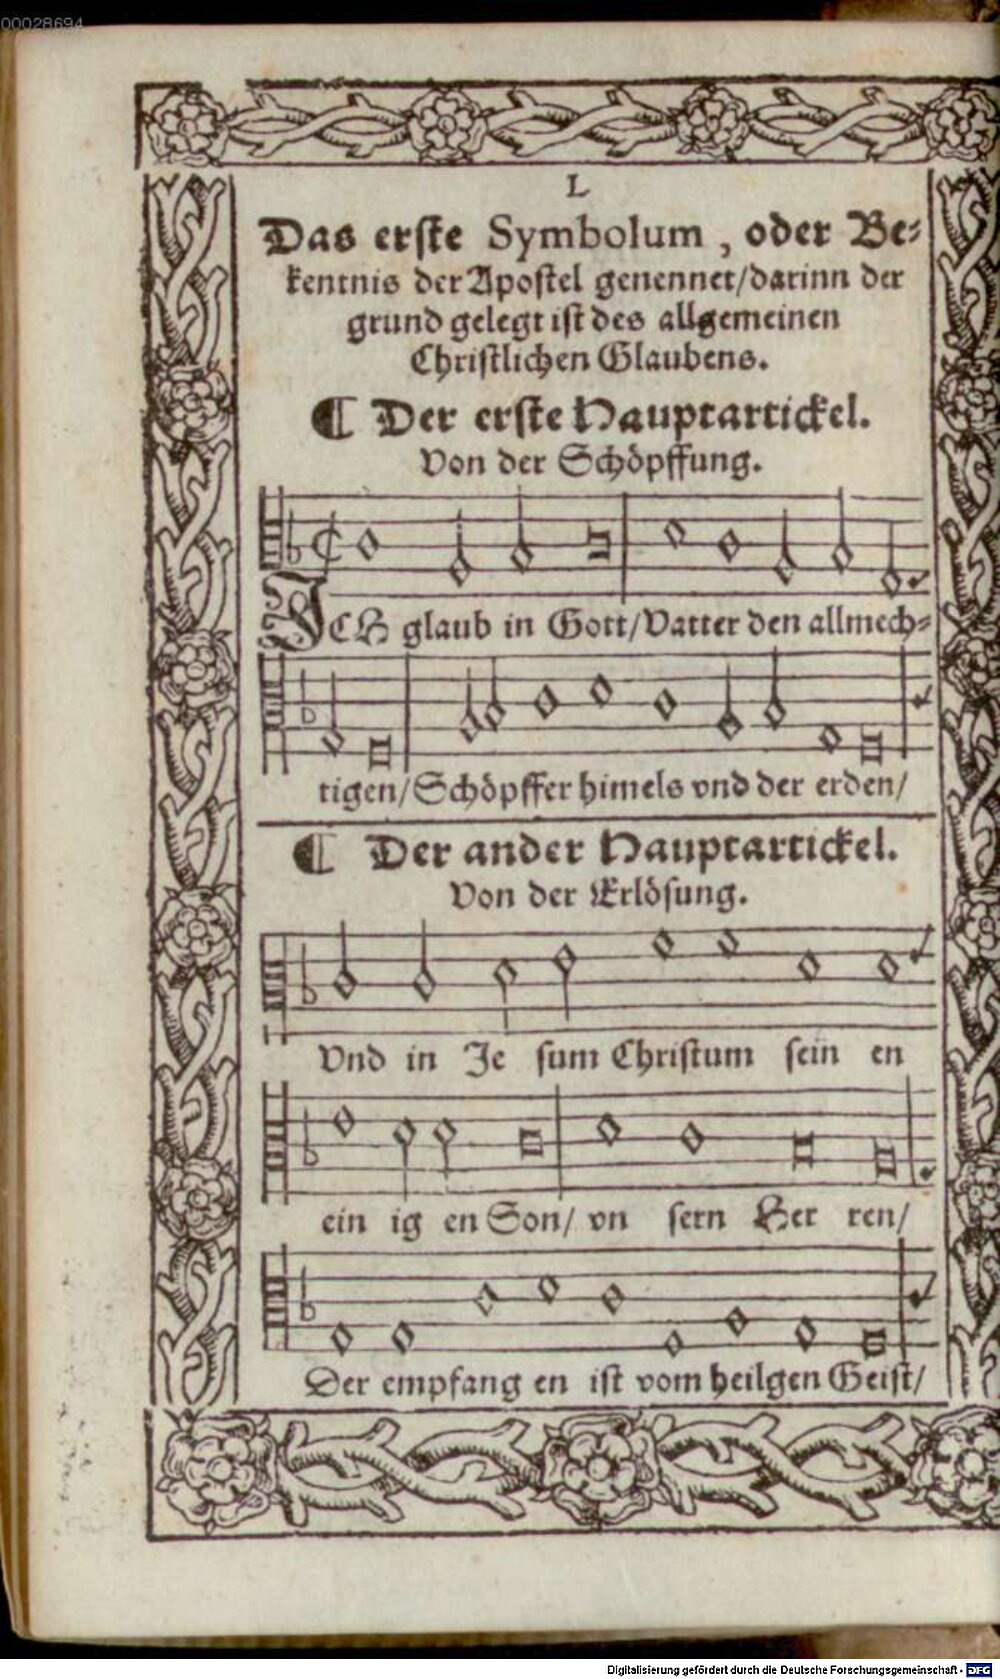 00028694
L
Das erste Symbolum, oder Be⸗
kentnis der Apostel genennet/darinn der
grund gelegt ist des allgemeinen
Christlichen Glaubens.
Der erste Hauptartickel.
Von der Schöpffung.
ICH glaub in Gott/Vatter den allmech⸗
tigen/Schöpffer himels vnd der erden/
Der ander Hauptartickel.
Von der Erlösung.
Vnd in Je sum Christum sein en
ein ig en Son/ vn sern Her ren/
Der empfang en ist vom heilgen Geist/
Digitalisierung gefördert durch die Deutsche Forschungsgemeinschaft - DFG